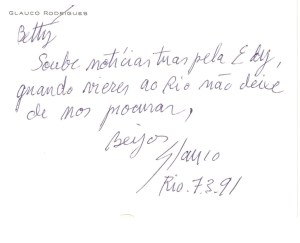 GLAUCO RODRIGUES
Betty
Soube notícias tuas pela E by,
quando vieres ao Rio não deixe
de nos procurar,
Beijos
Glauco
Rio. 7.3.91